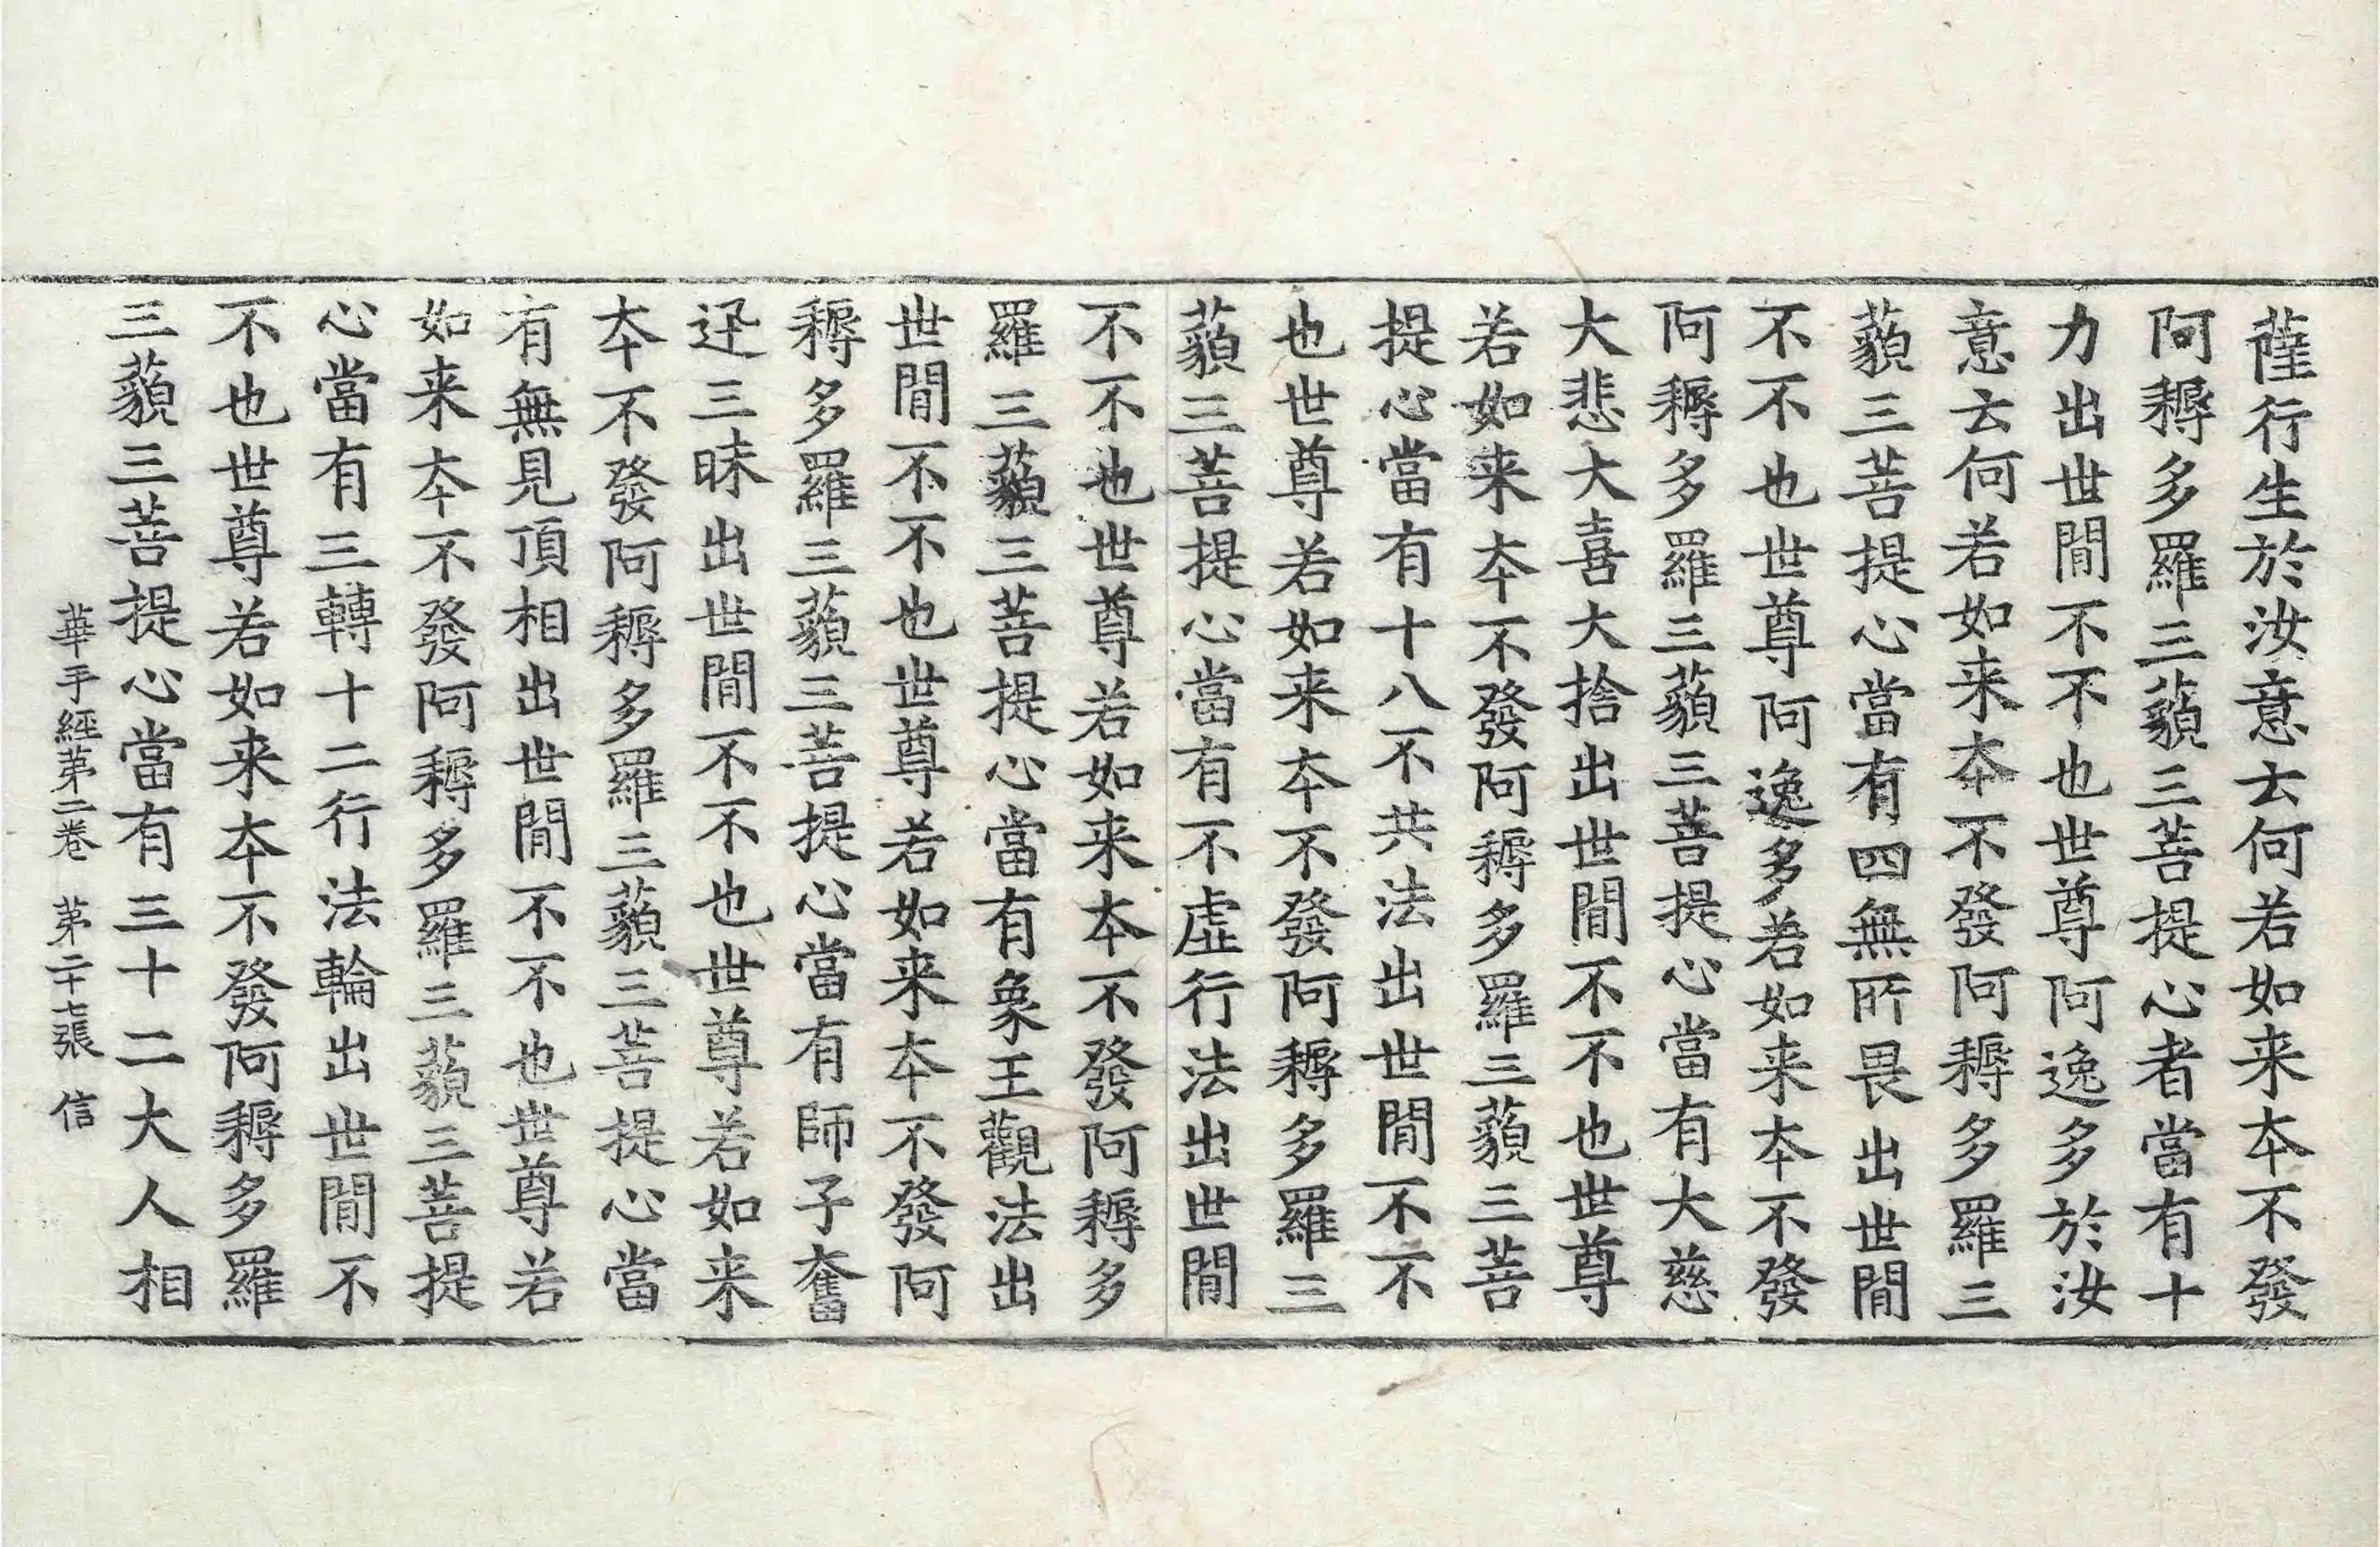 薩行生於汝意去何若如来夲不發
阿耨多羅三藐三菩提心者當有十
力出世閒不不也世尊阿逸多於汝
意去何若如来夲不發阿耨多羅三
藐三菩提心當有四無所畏出世閒
不不也世尊阿逸多若如来夲不發
阿耨多羅三藐三菩提心當有大慈
大悲大喜大捨出世閒不不也世尊
若如来夲不發阿耨多羅三藐三菩
提心當有十八不共法出世閒不不
也世尊若如来夲不發阿耨多羅三
藐三菩提心當有不虛行法出世閒
不不也世尊若如来夲不發阿耨多
羅三藐三菩提心當有象王觀法出
世閒不不也世尊若如来夲不發阿
耨多羅三藐三菩提心當有師子奮
迅三昧出世閒不不也世尊若如来
夲不發阿耨多羅三藐三菩提心當
有無見頂相出世閒不不也世尊若
如来夲不發阿耨多羅三藐三菩提
心當有三轉十二行法輪出世閒不
不也世尊若如来夲不發阿耨多羅
三藐三菩提心當有三十二大人相
華手經苐二卷 苐二十七張 信